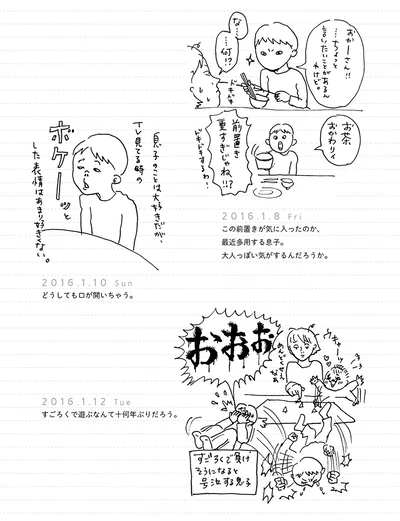 おかーさん!!
……ちょっと
言いたいことがあるん
だけど。
な……
……何!?
ドキドキ
お茶
おかわりィ
前置き
重すぎじゃね!!?
ドキドキするわ…
2016.1.8 Fri
この前置きが気に入ったのか、
最近多用する息子。
大人っぽい気がするんだろうか。
息子のことは大好きだが、
TV見てる時の
ボケーーッと
した表情はあまり好きくない。
2016.1.10 Sun
どうしても口が開いちゃう。
おおお
キャーッ
すごろくで負け
そうになると
号泣する息子
2016.1.12 Tue
すごろくで遊ぶなんて十何年ぶりだろう。